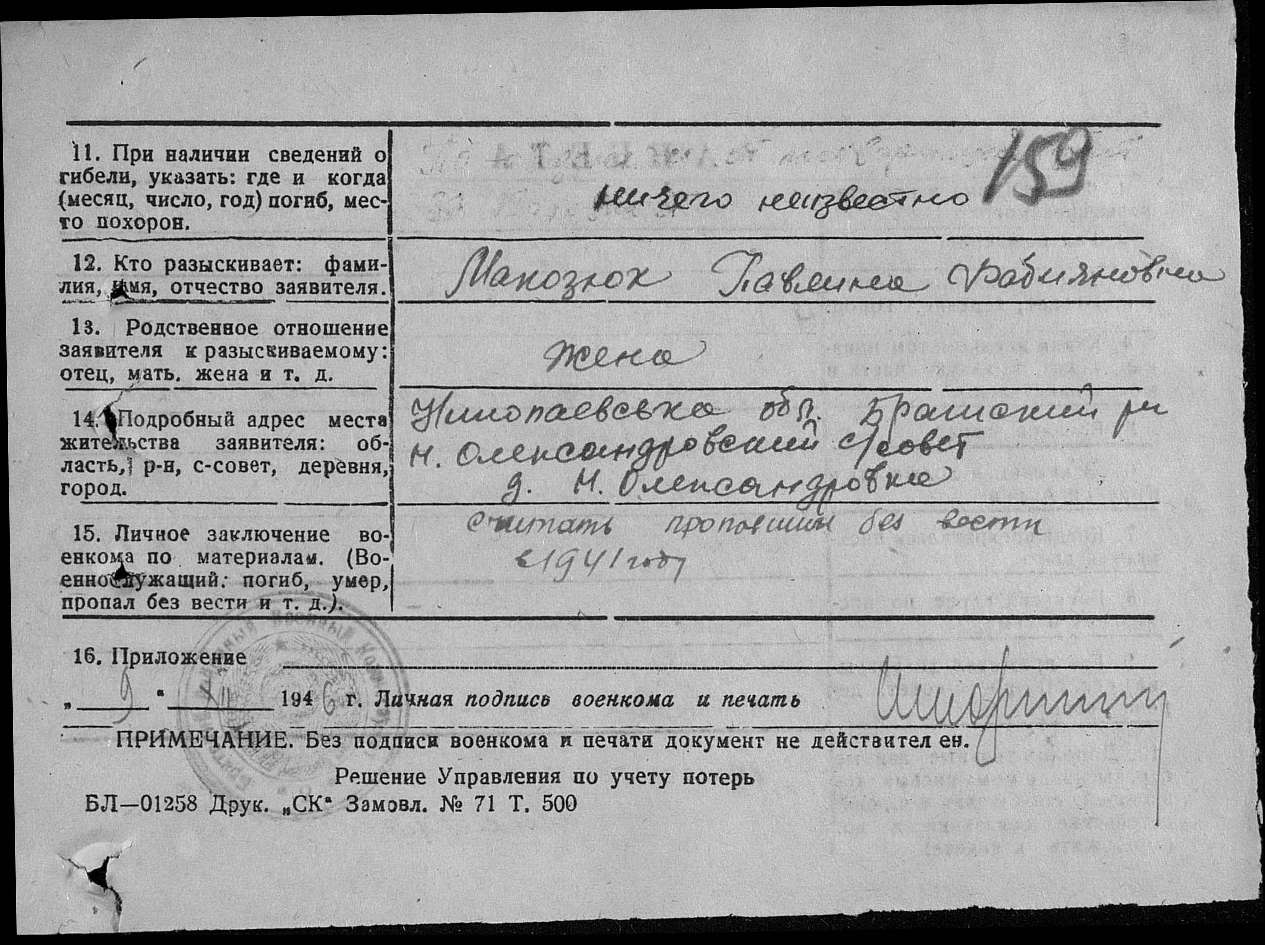 159
11. При наличии сведений о
гибели, указать: где и когда
(месяц, число, год) погиб, мес-
то похорон.
ничего неизвестно
12. Кто разыскивает: фами-
лия, имя, отчество заявителя.
Макозюк Павлина Фабияновна
13. Родственное отношение
заявителя к разыскиваемому:
отец, мать. жена и т. д.
жена
14. Подробный адрес места
жительства заявителя: об-
ласть, р-н, с-совет, деревня,
город.
Николаевська обл. Братский рн
Н. Олександровский с/совет
д. Н. Олександровка
15. Личное заключение во-
енкома по материалам. (Во-
еннослужащий: погиб, умер,
пропал без вести и т. д.).
Считать пропавшим без вести
в 1941 году
16. Приложение
„ 9 “ XII 1946 г. Личная подпись военкома и печать
ПРИМЕЧАНИЕ. Без подписи военкома и печати документ не действител ен.
Решение Управления по учету потерь
БЛ—01258 Друк. „СК“ Замовл. № 71 Т. 500